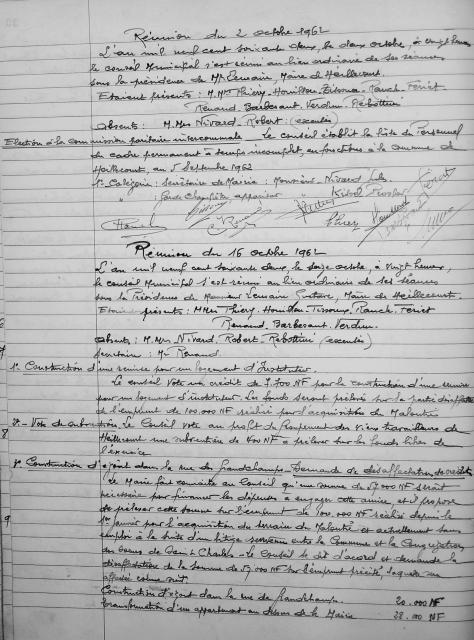 Réunion du 2 octobre 1962
L'an mil neuf cent soixante deux, le deux octobre, à vingt heures
le conseil Municipal s'est réuni au lieu ordinaire de ses séances
sous la présidence de Mr Lemain, Maire de Heillecourt.
Etaient présents : M.Mrs Thiéry - Houillon - Tissoux - Ranck - Feriet
Renaud. Barbesant. Verdun. Rebottini
Absents : M.Mrs Nivard, Robert (excusés)
Election à la commission paritaire intercommunale - Le conseil établit la liste du Personnel
du cadre permanent à temps incomplet, en fonctions à la commune de
Heillecourt, au 5 Septembre 1962
1° Catégorie : Secrétaire de Mairie : Monsieur Nivard
" : Garde Champêtre appariteur
Réunion du 16 octobre 1962
L'an mil neuf cent soixante deux, le seize octobre, à vingt heures,
le conseil Municipal s'est réuni au lieu ordinaire de ses séances
sous la Présidence de Monsieur Lemain Gustave, Maire de Heillecourt.
Etaient présents : M.Mrs Thiéry. Houillon - Tissoux. Ranck. Feriet
Renaud. Barbesant. Verdun.
Absents : M.Mrs Nivard - Robert - Rebottini (excusés)
Secrétaire : Mr Renaud.
1° Construction d'une remise pour un logement d'Instituteur.
Le conseil vote un crédit de 7.700 NF pour la construction d'une remise
pour un logement d'instituteur. Les fonds seront prélevés sur la partie
de l'emprunt de 100.000 NF réalisé pour l'acquisition du
2° - Vote de subvention. Le Conseil vote au profit du Groupement des vieux travailleurs de
Heillecourt une subvention de 400 NF à prélever sur les fonds libres de
l'exercice
3° Construction d'égout dans la rue des Grandchamps - Demande de désaffectation de crédits
Le Maire fait connaître au Conseil qu'une somme de 57.000 NF serait
nécessaire pour financer les dépenses à engager cette année, et il propose
de prélever cette somme sur l'emprunt de 100.000 NF réalisé depuis le
1er janvier pour l'acquisition du terrain du et actuellement sans
emploi à la suite d'un litige survenu entre la Commune et la Congrégation
des Soeurs de St Charles - Le Conseil se dit d'accord et demande la
désaffectation de la somme de 57.000 NF sur l'emprunt précité, laquelle est
affectée comme suit.
Construction d'égout dans la rue de Grandchamps. 20.000 NF
Transformation d'un appartement au dessus de la Mairie 28.000 NF